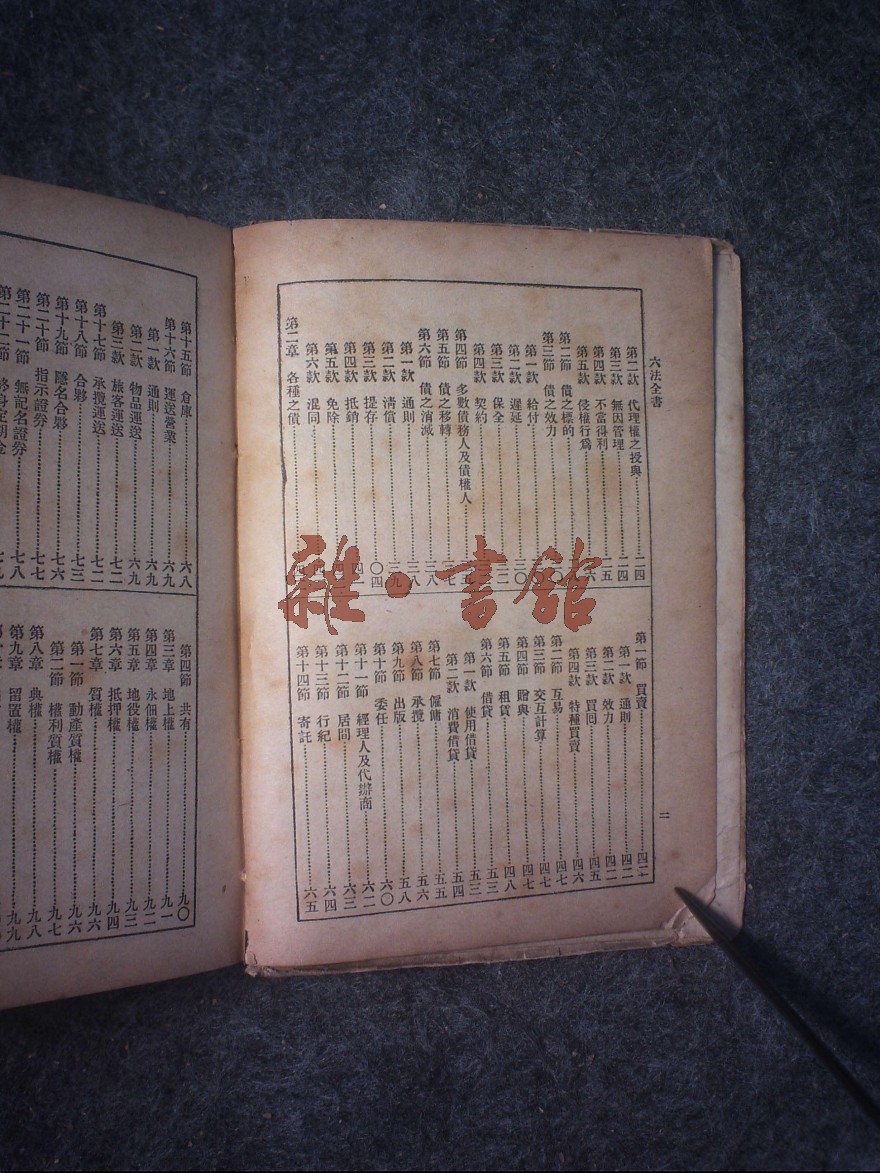 六法全書
第二款 代理權之授與 二四
第三款 無因管理 二四
第四款 不當得利 二五
第五款 侵權行爲
第二節 債之標的
第三節 債之效力
第一款 給付
第二款 遲延 三〇
第三款 保全
第四款 契約
第四節 多數債務人及債權人
第五節 債之移轉
第六節 債之消滅 三八
第一款 通則 三八
第二款 清償 三九
第三款 提存
第四款 抵銷
第五款 免除
第六款 混同
第二章 各種之債
第一節 買賣 四二
第一款 通則 四二
第二款 效力 四二
第三款 買回 四五
第四款 特種買賣 四六
第二節 互易 四七
第三節 交互計算 四七
第四節 贈與 四七
第五節 租賃 四八
第六節 借貸 五三
第一款 使用借貸 五三
第二款 消費借貸 五四
第七節 僱傭 五五
第八節 承攬 五六
第九節 出版 五八
第十節 委任 六〇
第十一節 經理人及代辦商 六二
第十二節 居間 六三
第十三節 行紀 六四
第十四節 寄託 六五
二
第十五節 倉庫 六八
第十六節 運送營業 六九
第一款 通則 六九
第二款 物品運送 六九
第三款 旅客運送 七二
第十七節 承攬運送 七二
第十八節 合夥 七三
第十九節 隱名合夥 七六
第二十節 指示證券 七七
第二十一節 無記名證券 七八
第二十二節 終身定期金 七九
第四節 共有 九〇
第三章 地上權 九一
第四章 永佃權 九二
第五章 地役權 九三
第六章 抵押權 九四
第七章 質權 九六
第一節 動產質權 九六
第二節 權利質權 九七
第八章 典權 九八
第九章 留置權 九九
雜·書館